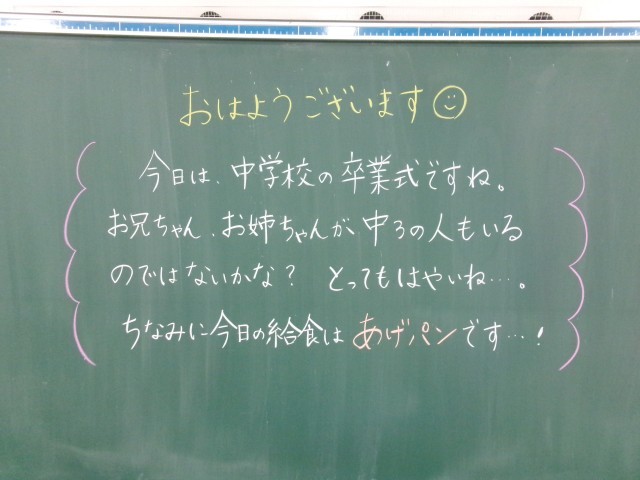 おはようございます☺
今日は、中学校の卒業式ですね。
お兄ちゃん、お姉ちゃんが、中3の人もいる
のではないかな？ とってもはやいね…。
ちなみに今日の給食は あげパンです…！